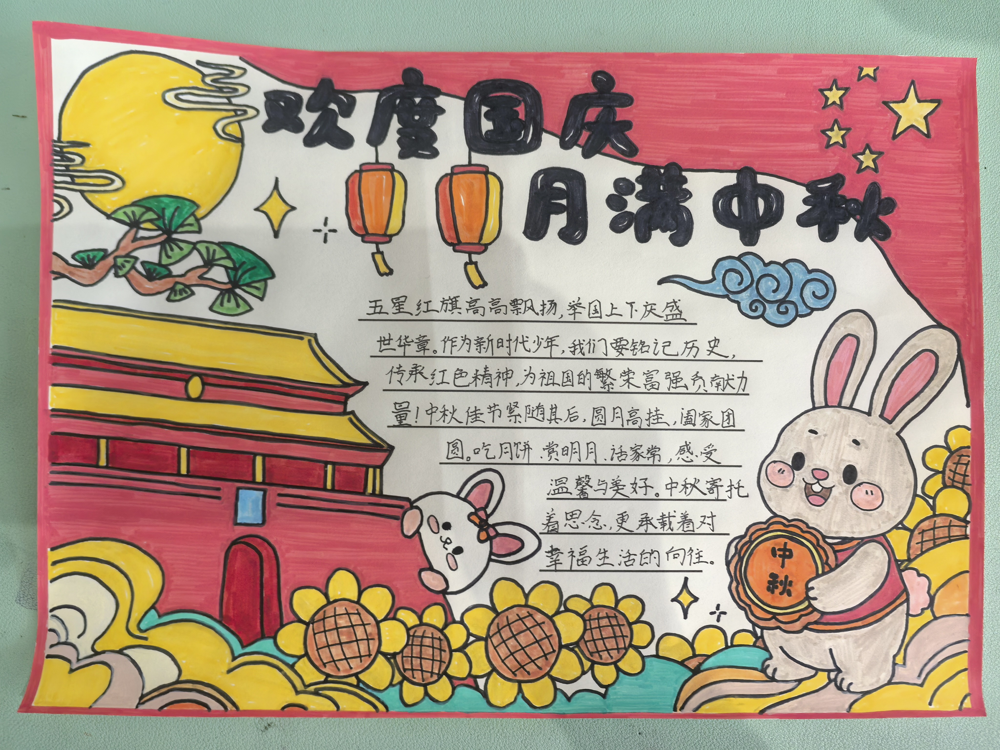 欢度国庆
月满中秋
五星红旗高高飘扬,举国上下庆盛
世华章。作为新时代少年,我们要铭记历史,
传承红色精神,为祖国的繁荣富强贡献力
量!中秋佳节紧随其后,圆月高挂,阖家团
圆。吃月饼、赏明月、话家常,感受
温馨与美好。中秋寄托
着思念,更承载着对
幸福生活的向往。
中
秋